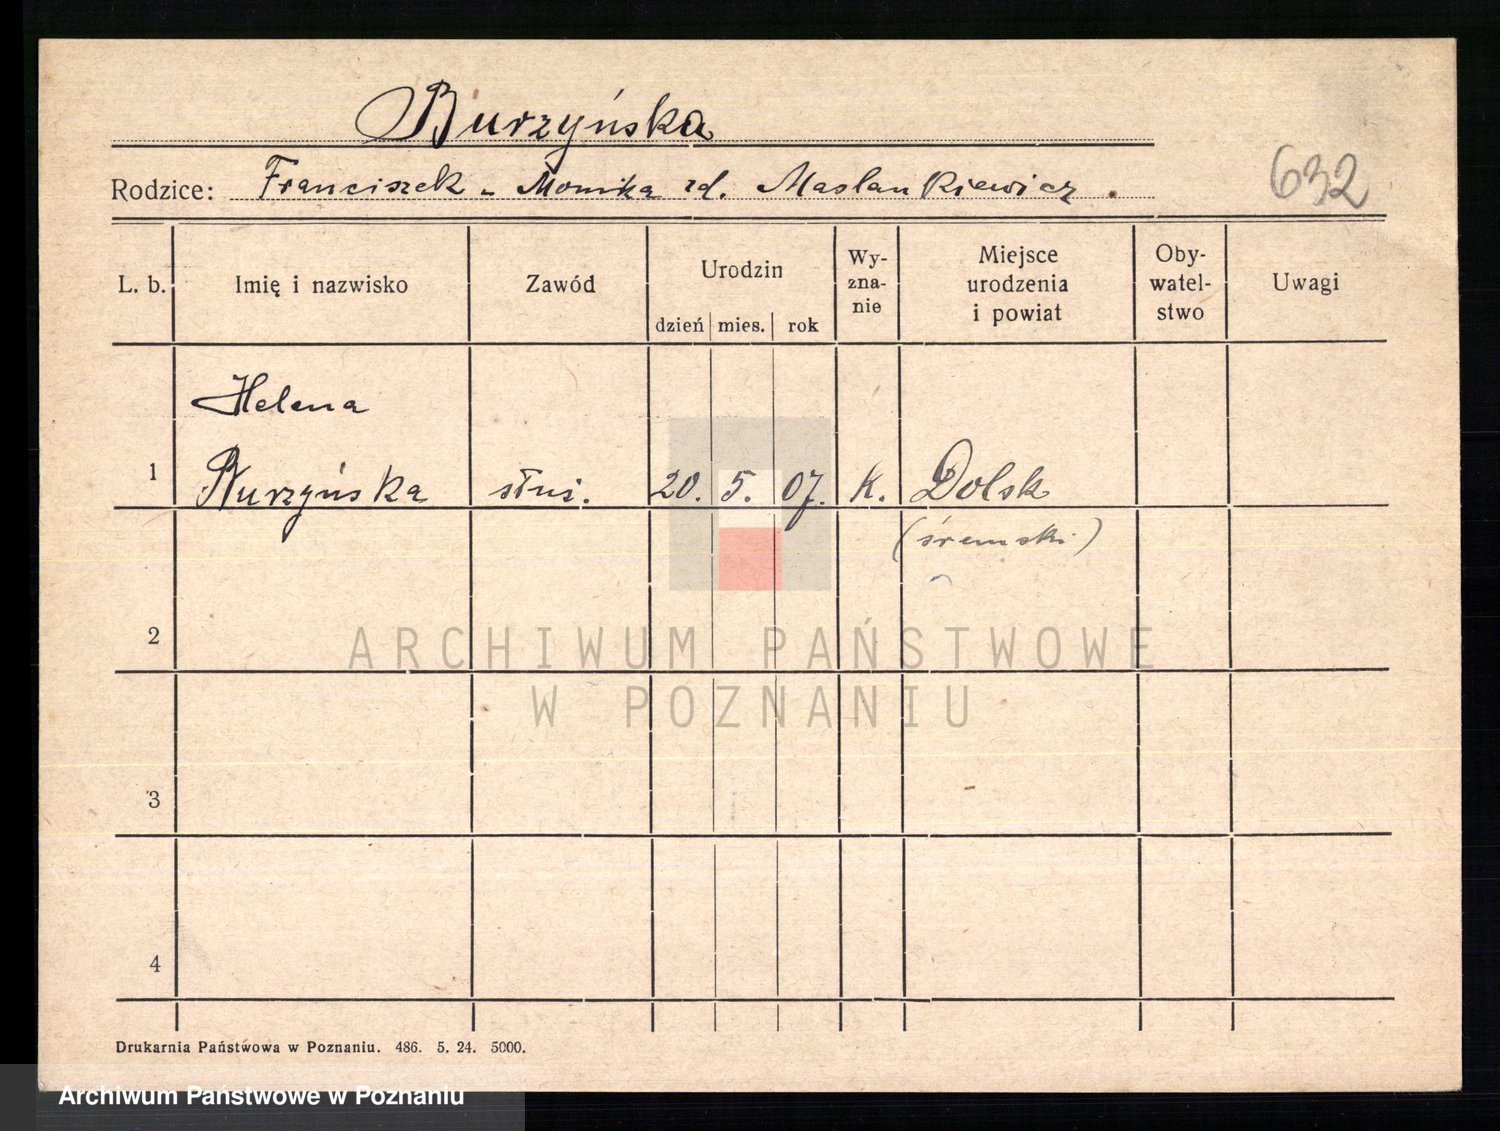 Burzyńska
Rodzice: Franciszek - Monika zd. Maslankiewicz.
632
L. b.
Imię i nazwisko
Zawód
Urodzin
dzień mies. rok
Wy-
zna-
nie
Miejsce
urodzenia
i powiat
Oby-
watel-
stwo
Uwagi
Helena
1 Burzyńska służ. 20. 5. 07. K. Dolsk
(śremski)
2
3
4
ARCHIWUM PAŃSTWOWE
W POZNANIU
Drukarnia Państwowa w Poznaniu. 486. 5. 24. 5000.
Archiwum Państwowe w Poznaniu